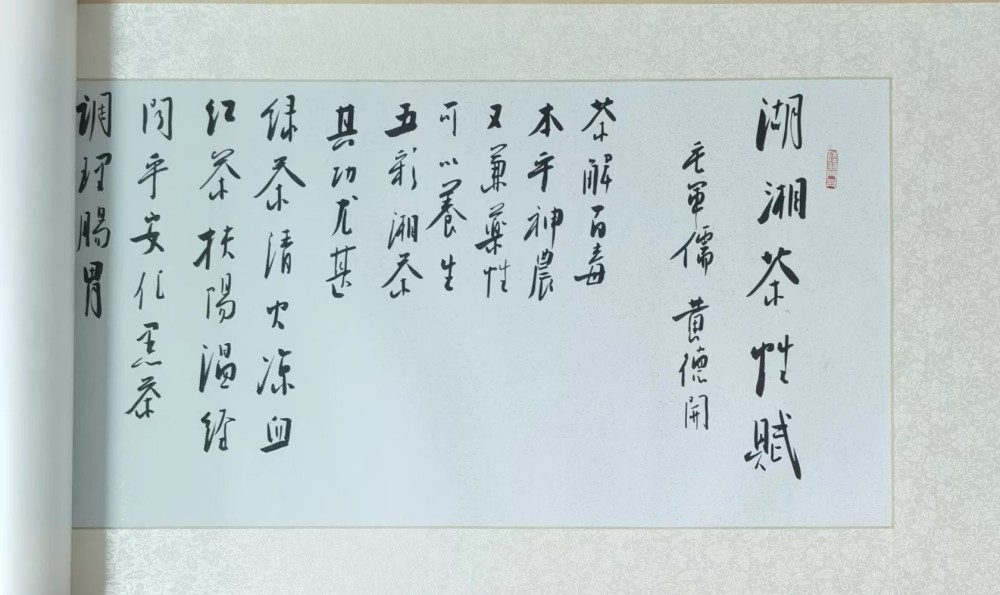 湖湘茶性賦
毛軍儒 黄德開
茶解百毒
本乎神農
又兼藥性
可以養生
五彩湘茶
其功尤甚
绿茶清火凉血
红茶扶陽温经
阅乎安化黑茶
调理腸胃